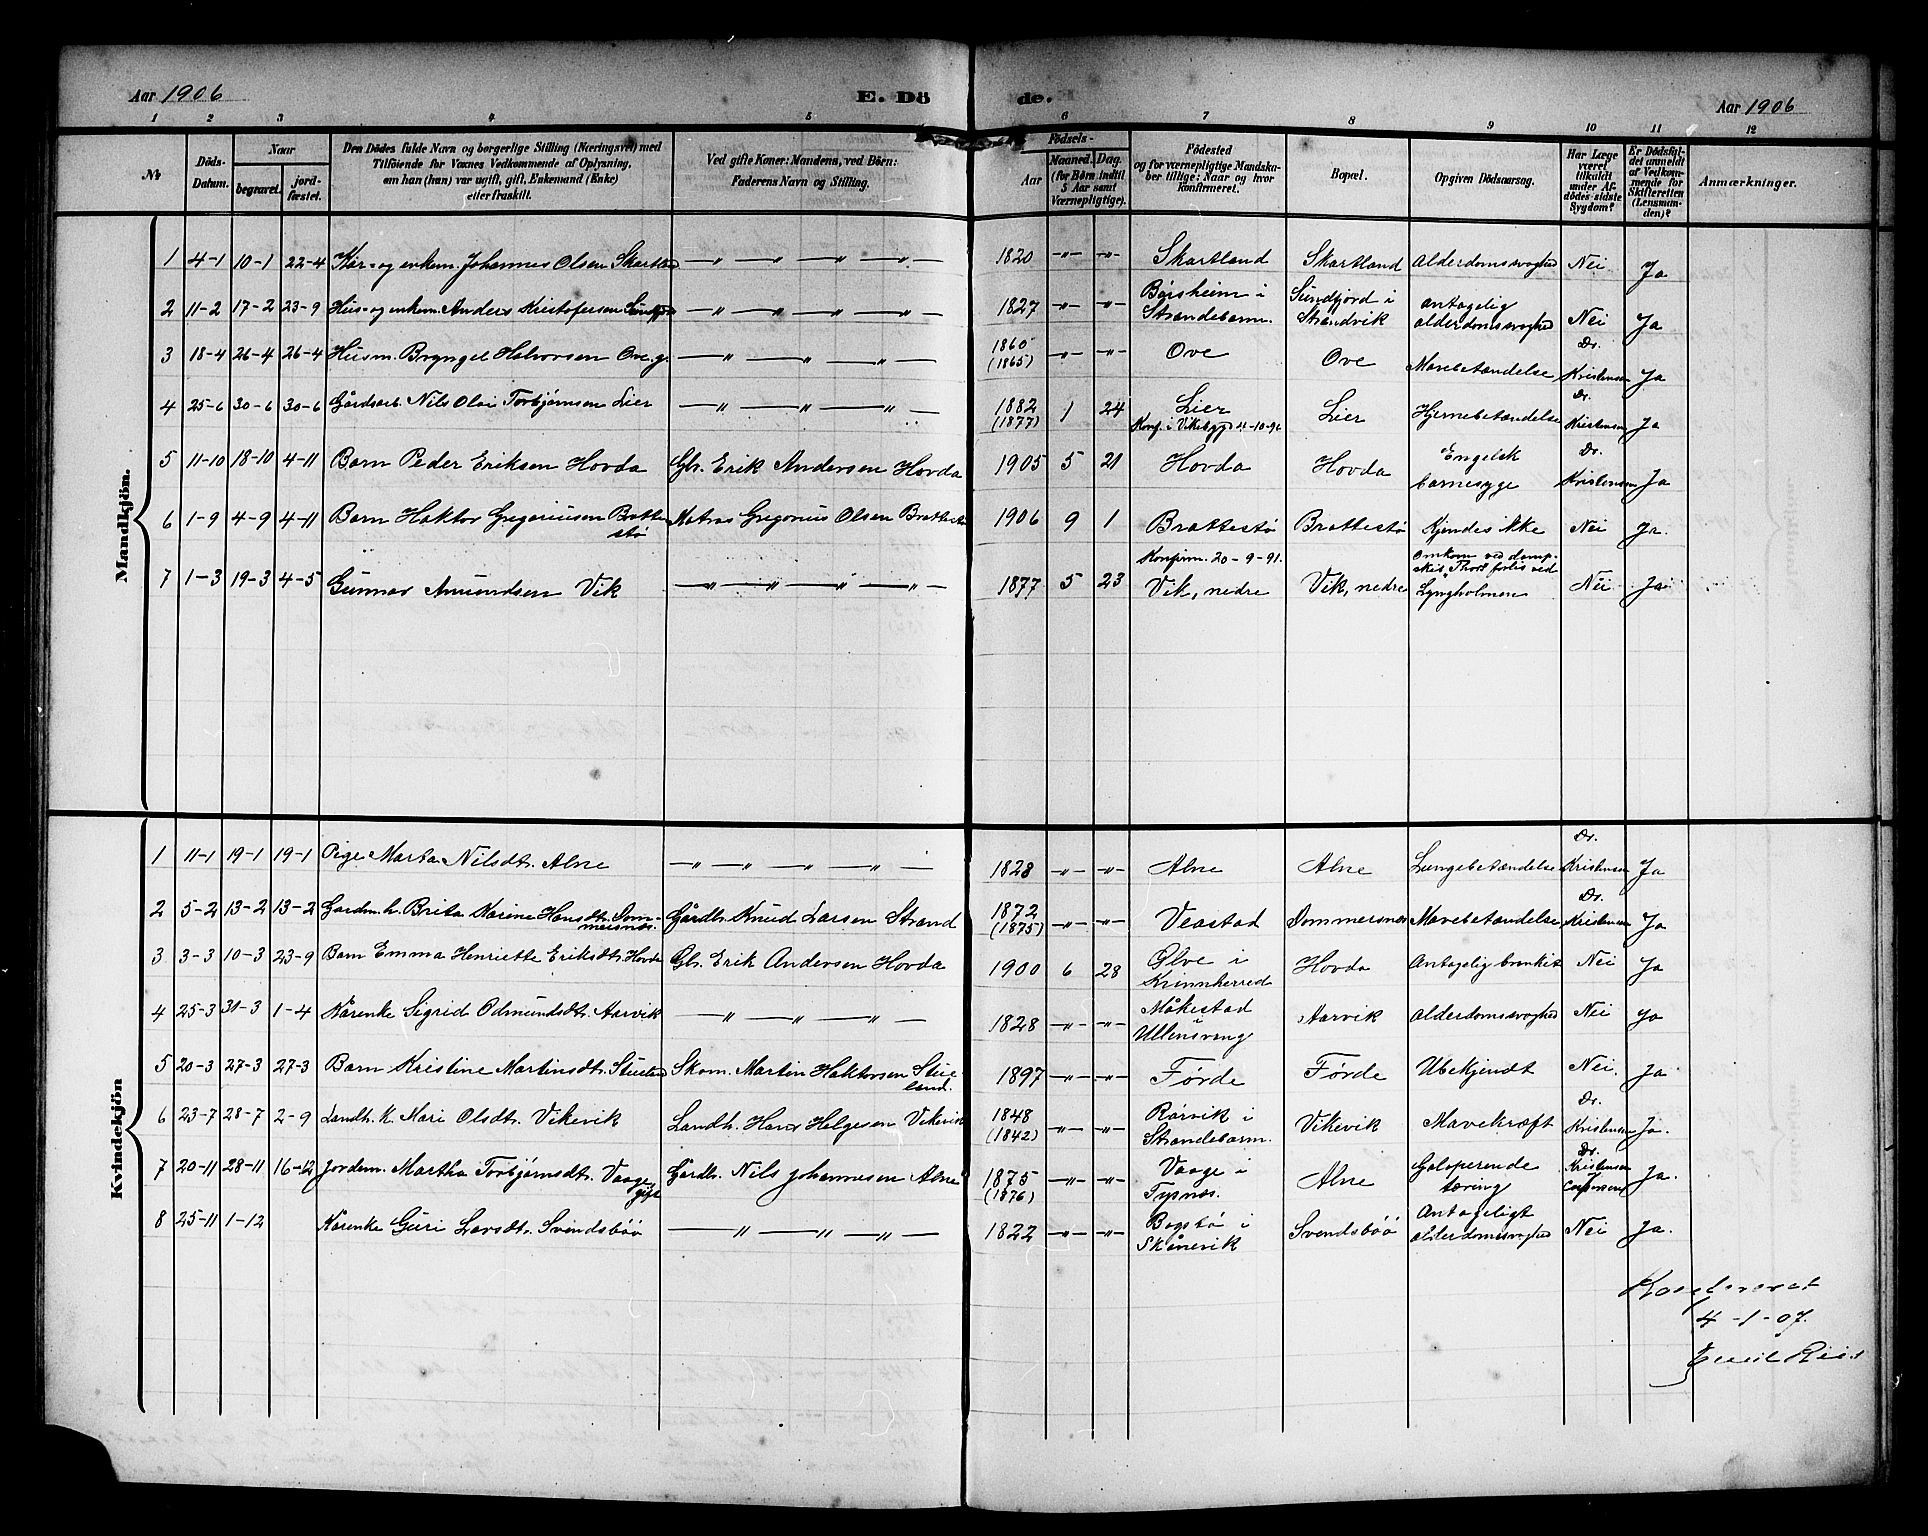 Aar 1906
E. Dö
de.
Aar 1906
1 2 3 4 5 6 7 8 9 10 11 12
№
Döds-Datum.
Naar
begravet.
jord-fæstet.
Den Dödes fulde Navn og borgerlige Stilling (Næringsvei) med
Tilföiende for Voxnes Vedkommende af Oplysning,
om han (hun) var ugift, gift, Enkemand (Enke)
eller fraskilt.
Ved gifte Koner: Mandens, ved Börn:
Faderens Navn og Stilling.
Födsels-
Aar
Maaned. Dag.
(for Börn indtil
5 Aar samt
Værnepligtige).
Födested
og for værnepligtige Mandska-
ber tillige: Naar og hvor
konfirmeret.
Bopæl.
Opgiven Dödsaarsag.
Har Læge
været
tilkaldt
under Af-
dödes sidste
Sygdom?
Er Dödsfal-
det anmeldt
af Vedkom-
mende for
Skifteretten
(Lensman-
den)?
Anmærkninger.
Mandkjön.
1 4-1 10-1 22-4 Kår- og enkem. Johannes Olsen Skartland 1820 Skartland Skartland Alderdomssvaghed Nei Ja
2 11-2 17-2 23-9 Hus- og enkem. Anders Kristofersen 1827 Børsheim i Strandebarm. Sundfjord i Strandvik Antagelig alderdomssvaghed Nei Ja
3 18-4 26-4 26-4 Husm. Bryngel Halvorsen Ove. g. 1860 (1865) Ove Ove Mavebetændelse Dr. Kristensen Ja
4 25-6 30-6 30-6 Gårdsarb. Nils Olai Torbjørnsen Lier 1882 (1877) 1 24 Lier Konf. i Vikebygd 4-10-96 Lier Hjernebetændelse Dr. Kristensen Ja
5 11-10 18-10 4-11 Barn Peder Eriksen Hovda Gbr. Erik Andersen Hovda 1905 5 21 Hovda Hovda Engelsk barnesyge Dr. Kristensen Ja
6 1-9 4-9 4-11 Barn Haktor Gregoriusen Brattestø Matros Gregorius Olsen Brattestø 1906 9 1 Brattestø Brattestø Kjendes ikke Nei Ja.
7 1-3 19-3 4-5 Gunnar Amundsen Vik 1877 5 23 Konfirm. 20-9-91. Vik, nedre Vik, nedre Omkom ved damp-skis „Thor“ forlis ved Lyngholmen Nei Ja
Kvindekjön
1 11-1 19-1 19-1 Pige Marta Nilsdt. Alne 1828 Alne Alne Lungebetændelse Dr. Kristensen Ja
2 5-2 13-2 13-2 Gardm. h. Brita Karine Hansdt. Ommersnes. Gårdb. Knud Larsen Strand 1872 (1875) Veastad Ommersnes Mavebetændelse Dr. Kristensen Ja
3 3-3 10-3 23-9 Barn Emma Henriette Eriksdt. Hovda Gbr. Erik Andersen Hovda 1900 6 28 Ølve i Kvinnherred Hovda Antagelig bronkit Nei Ja
4 25-3 31-3 1-4 Kårenke Sigrid Odmundsdt. Aarvik 1828 Måkestad i Ullensvang Aarvik Alderdomssvaghed Nei Ja
5 20-3 27-3 27-3 Barn Kristine Martinsdt. Stueland Skom. Martin Haktorsen Stueland. 1897 Førde Førde Ubekjendt Nei. Ja
6 23-7 28-7 2-9 Landh. K. Mari Olsdt. Vikevik Landh. Hans Helgesen Vikevik 1848 (1842) Rørvik i Strandebarm. Vikevik Mavekræft Dr. Kristensen Ja.
7 20-11 28-11 16-12 Jordem. Martha Torbjørnsdt. Vaage, gift Gårdb. Nils Johannesen Alne 1875 (1876) Vaage i Tysnæs. Alne Galoperende tæring Dr. Kristensen Ja.
8 25-11 1-12 Kårenke Guri Larsdt. Svendsbøö 1822 Bogsbø i Skånevik Svendsbøö Antageligt alderdomssvaghed Nei Ja.
4-1-07.
Emil Riis